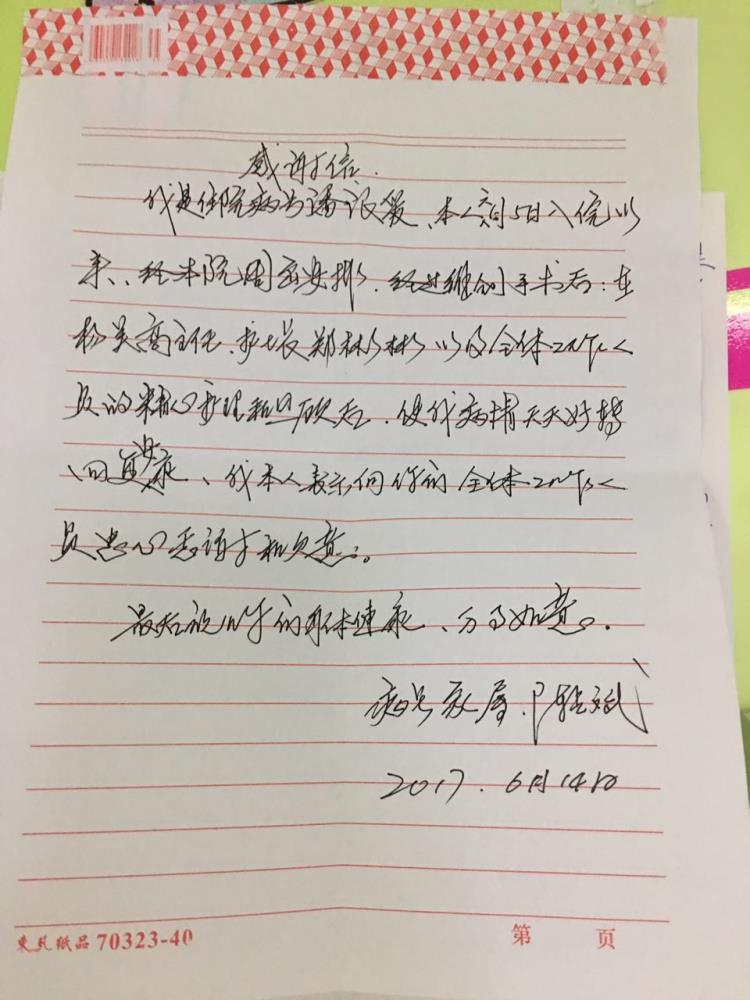 感谢信.
我是住院病号潘 、本人6月5日入院以
来、经本院周密安排.经过 手术后:在
杨吴高主任.护士长郑彬彬以及全体工作人
员的精心护理和照顾后.使我病情天天好转
、回 安康、我本人表示向你们全体工作人
员忠心感谢和 意。
最后祝你们身体健康、万事如意。
病号家属.
2017.6月14日
東风纸品 70323-40
第 页